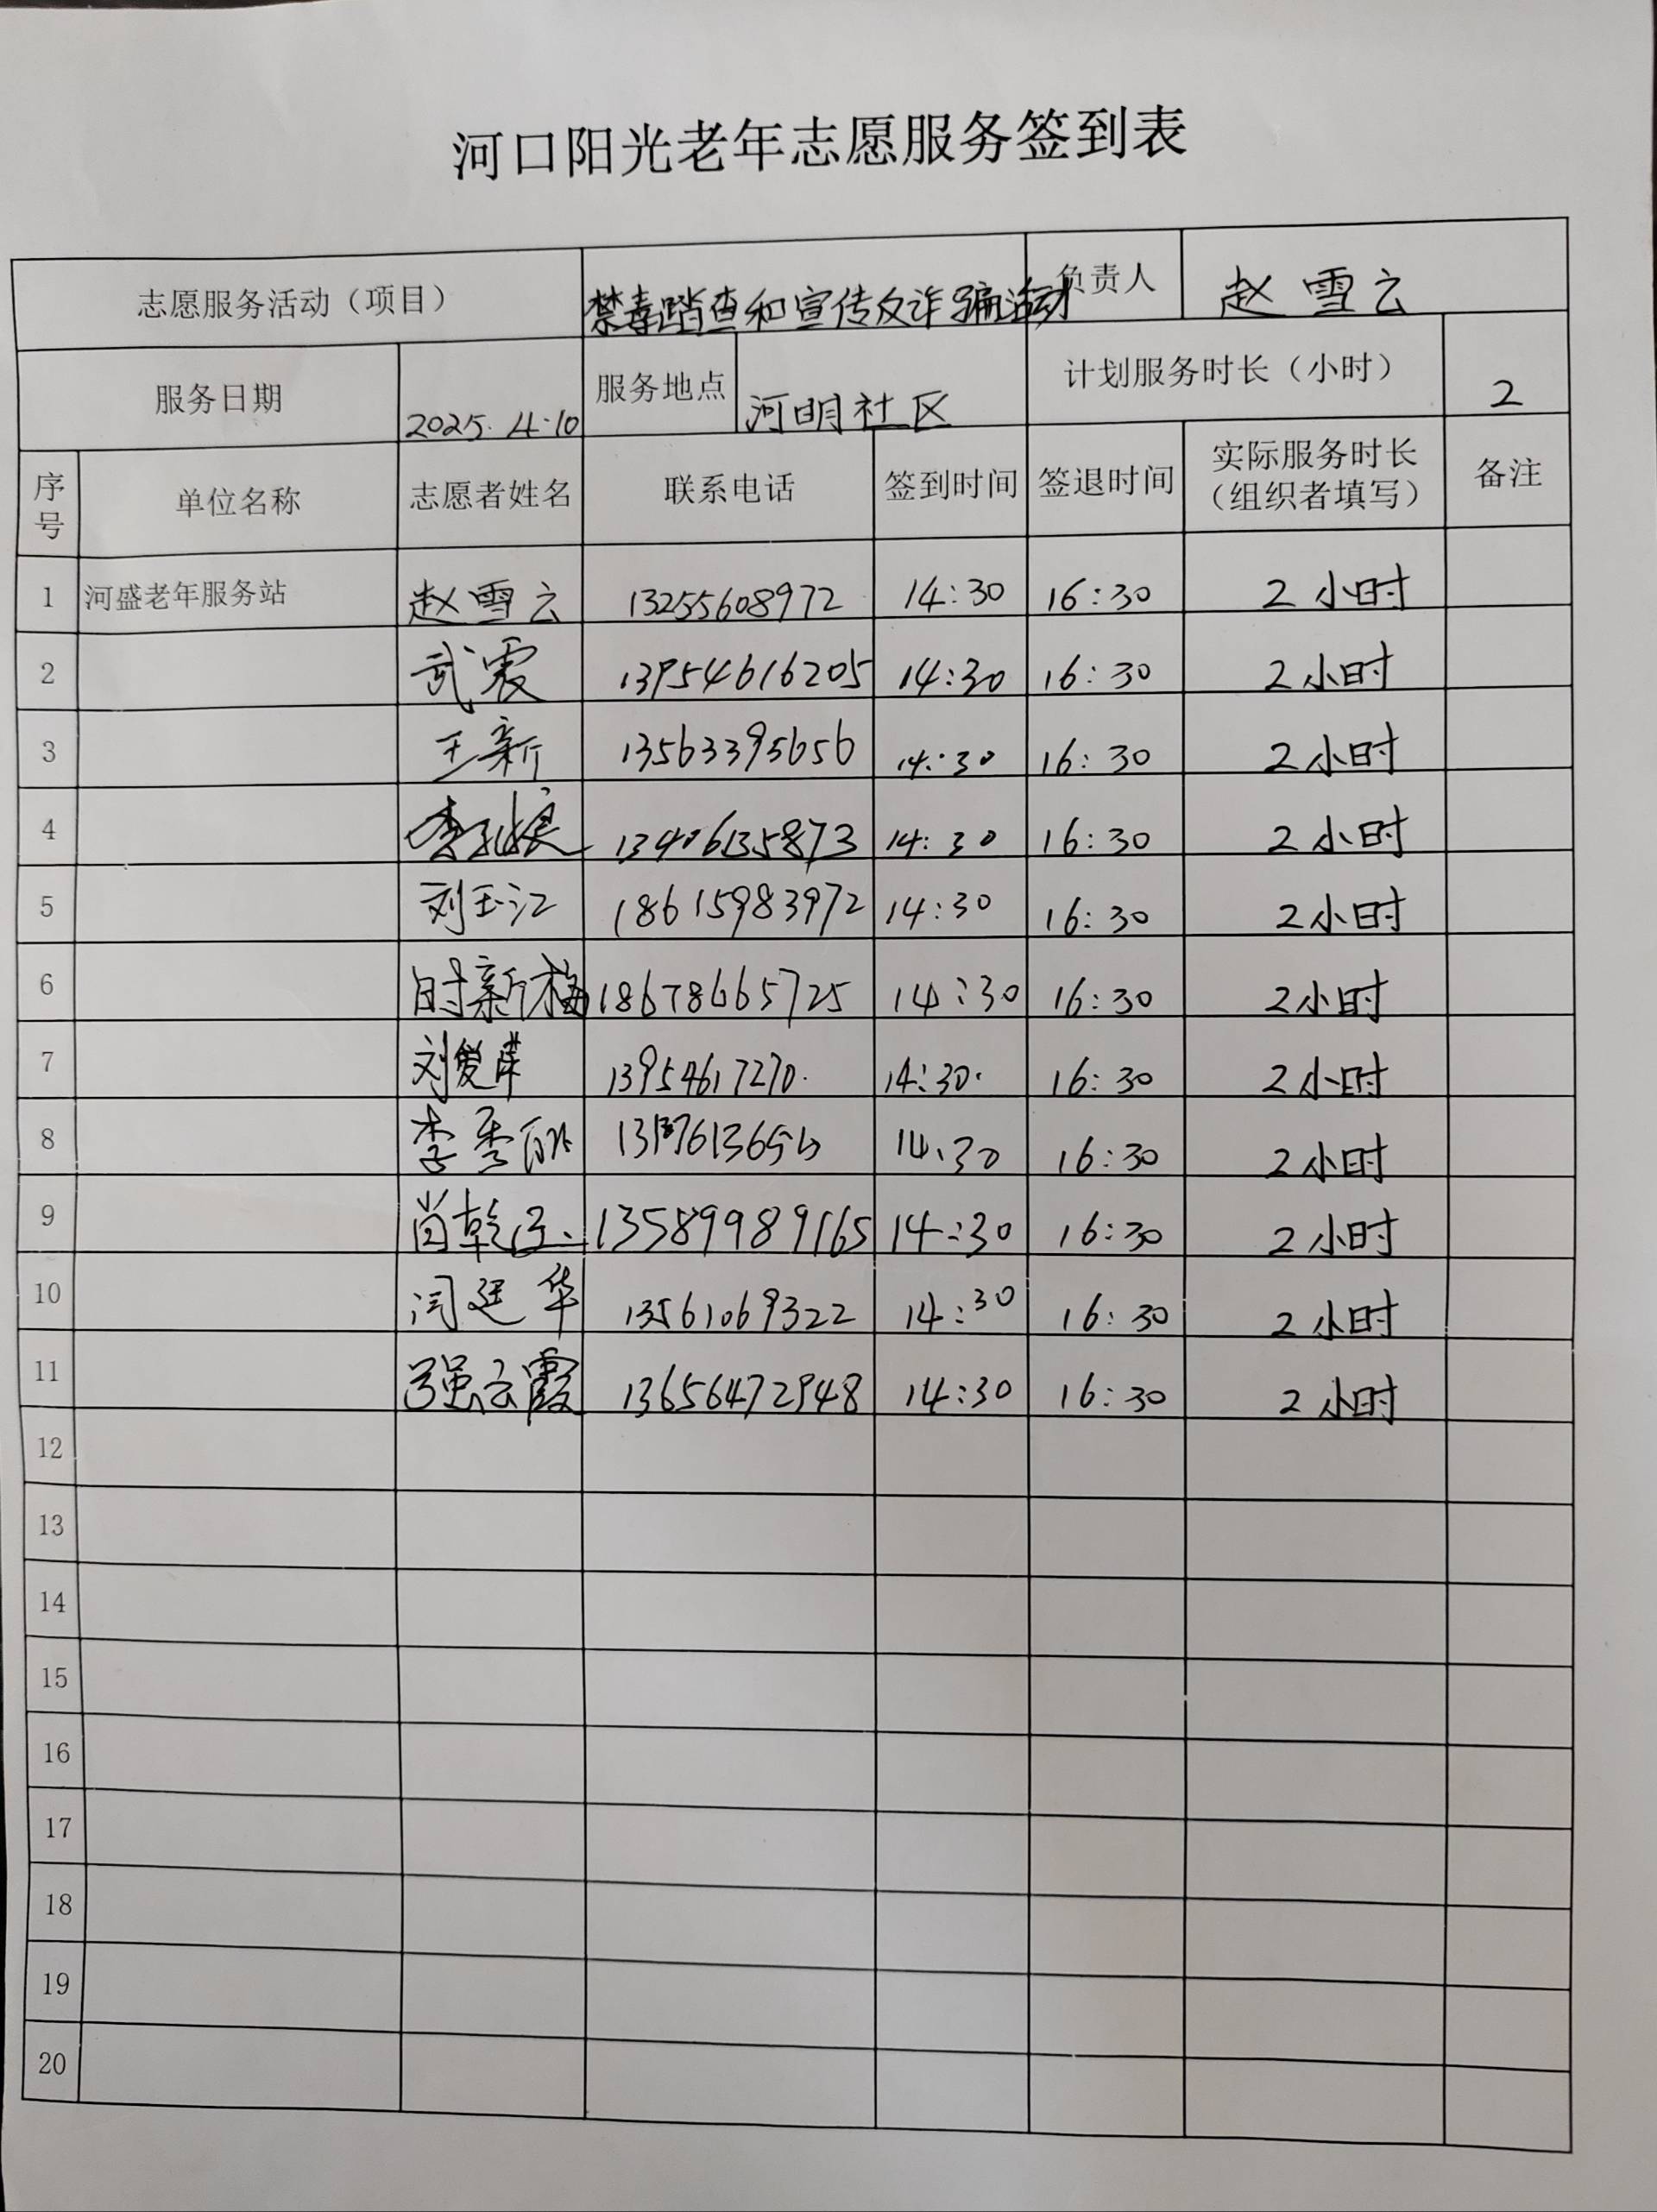 河口阳光老年志愿服务签到表
志愿服务活动（项目） 禁毒踏查和宣传反诈骗活动 负责人 赵雪云
服务日期 2025.4.10 服务地点 河明社区 计划服务时长（小时） 2
序号 单位名称 志愿者姓名 联系电话 签到时间 签退时间 实际服务时长（组织者填写） 备注
1 河盛老年服务站 赵雪云 13255608972 14:30 16:30 2小时
2 武震 13954616205 14:30 16:30 2小时
3 王新 13563395656 14:30 16:30 2小时
4 13406135873 14:30 16:30 2小时
5 刘玉江 18615983972 14:30 16:30 2小时
6 时新梅 18678665725 14:30 16:30 2小时
7 刘爱萍 13954617270. 14:30. 16:30 2小时
8 李秀 14.30 16:30 2小时
9 肖乾 13589989165 14:30 16:30 2小时
10 闫廷华 13561069322 14:30 16:30 2小时
11 强云霞 13656472948 14:30 16:30 2小时
12
13
14
15
16
17
18
19
20